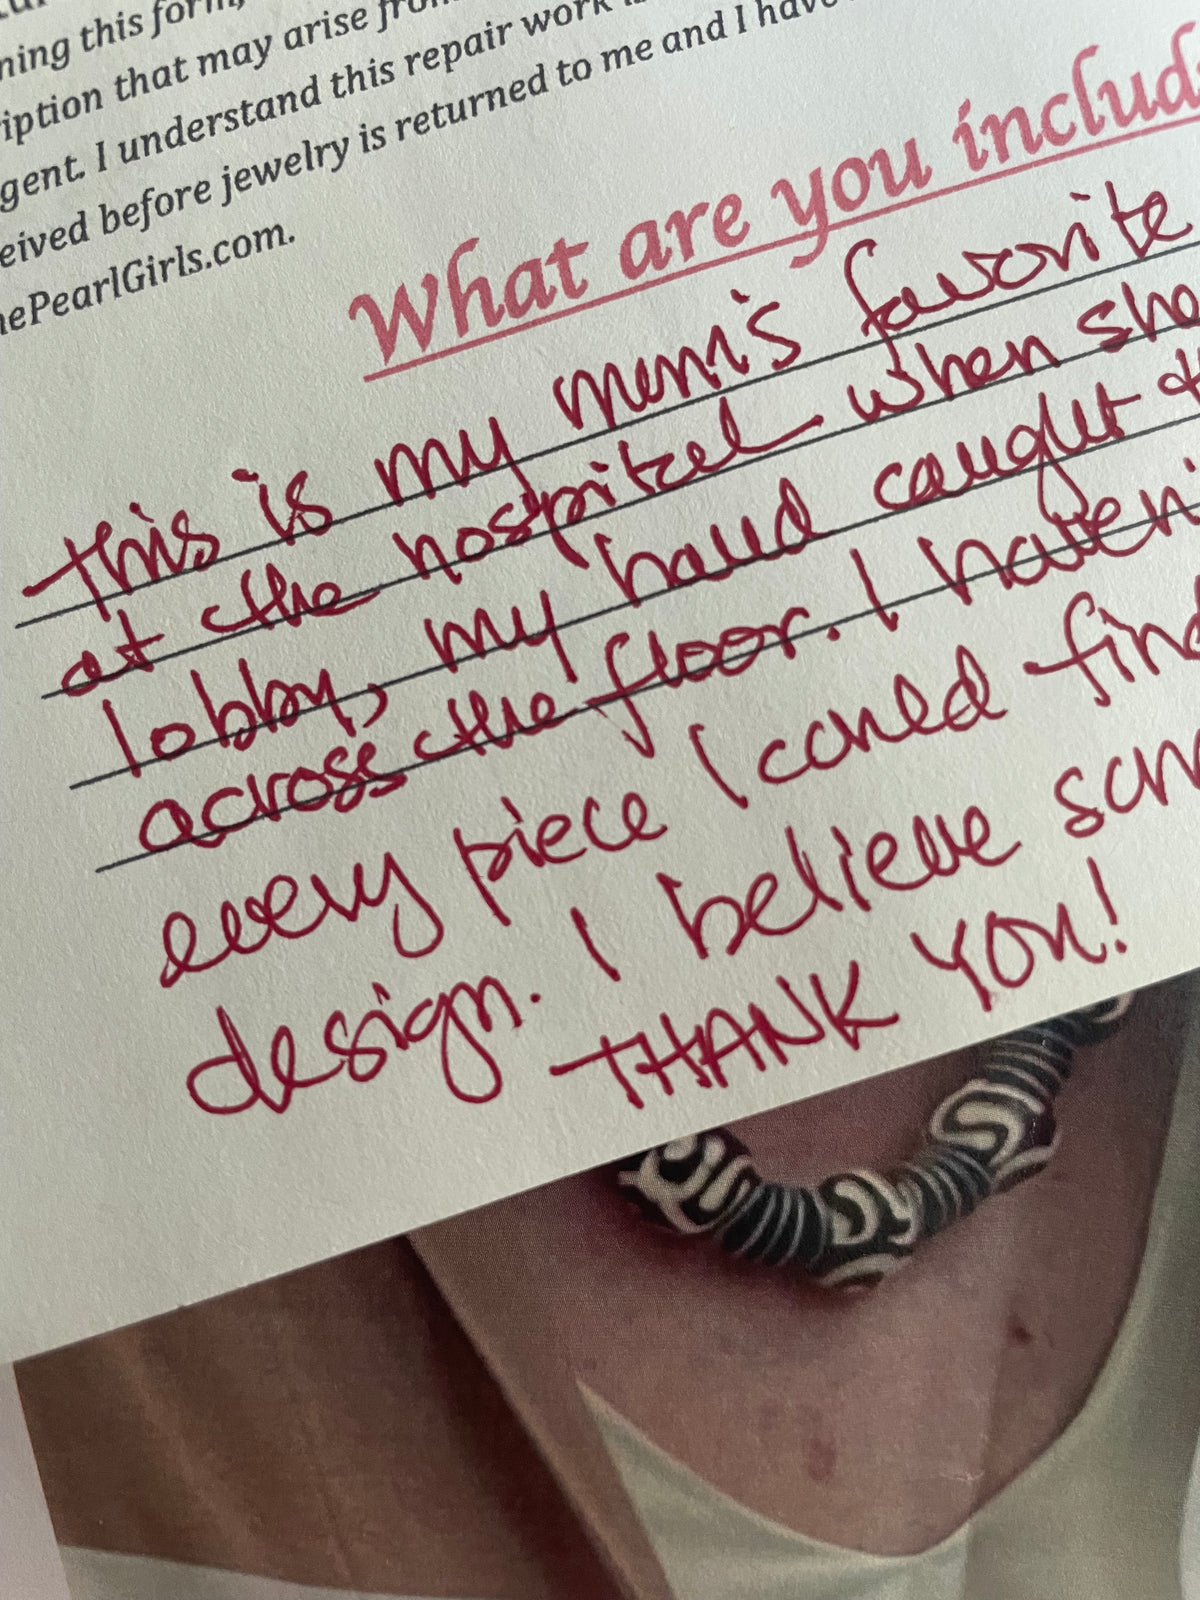 ning this form,
iption that may arise from
gent. I understand this repair work
eived before jewelry is returned to me and I have
hePearlGirls.com.
What are you includ
This is my mom's favorite
at the hospital when she
lobby, my hand caught
across the floor. I haven
every piece I could find
design. I believe som
THANK YOU!